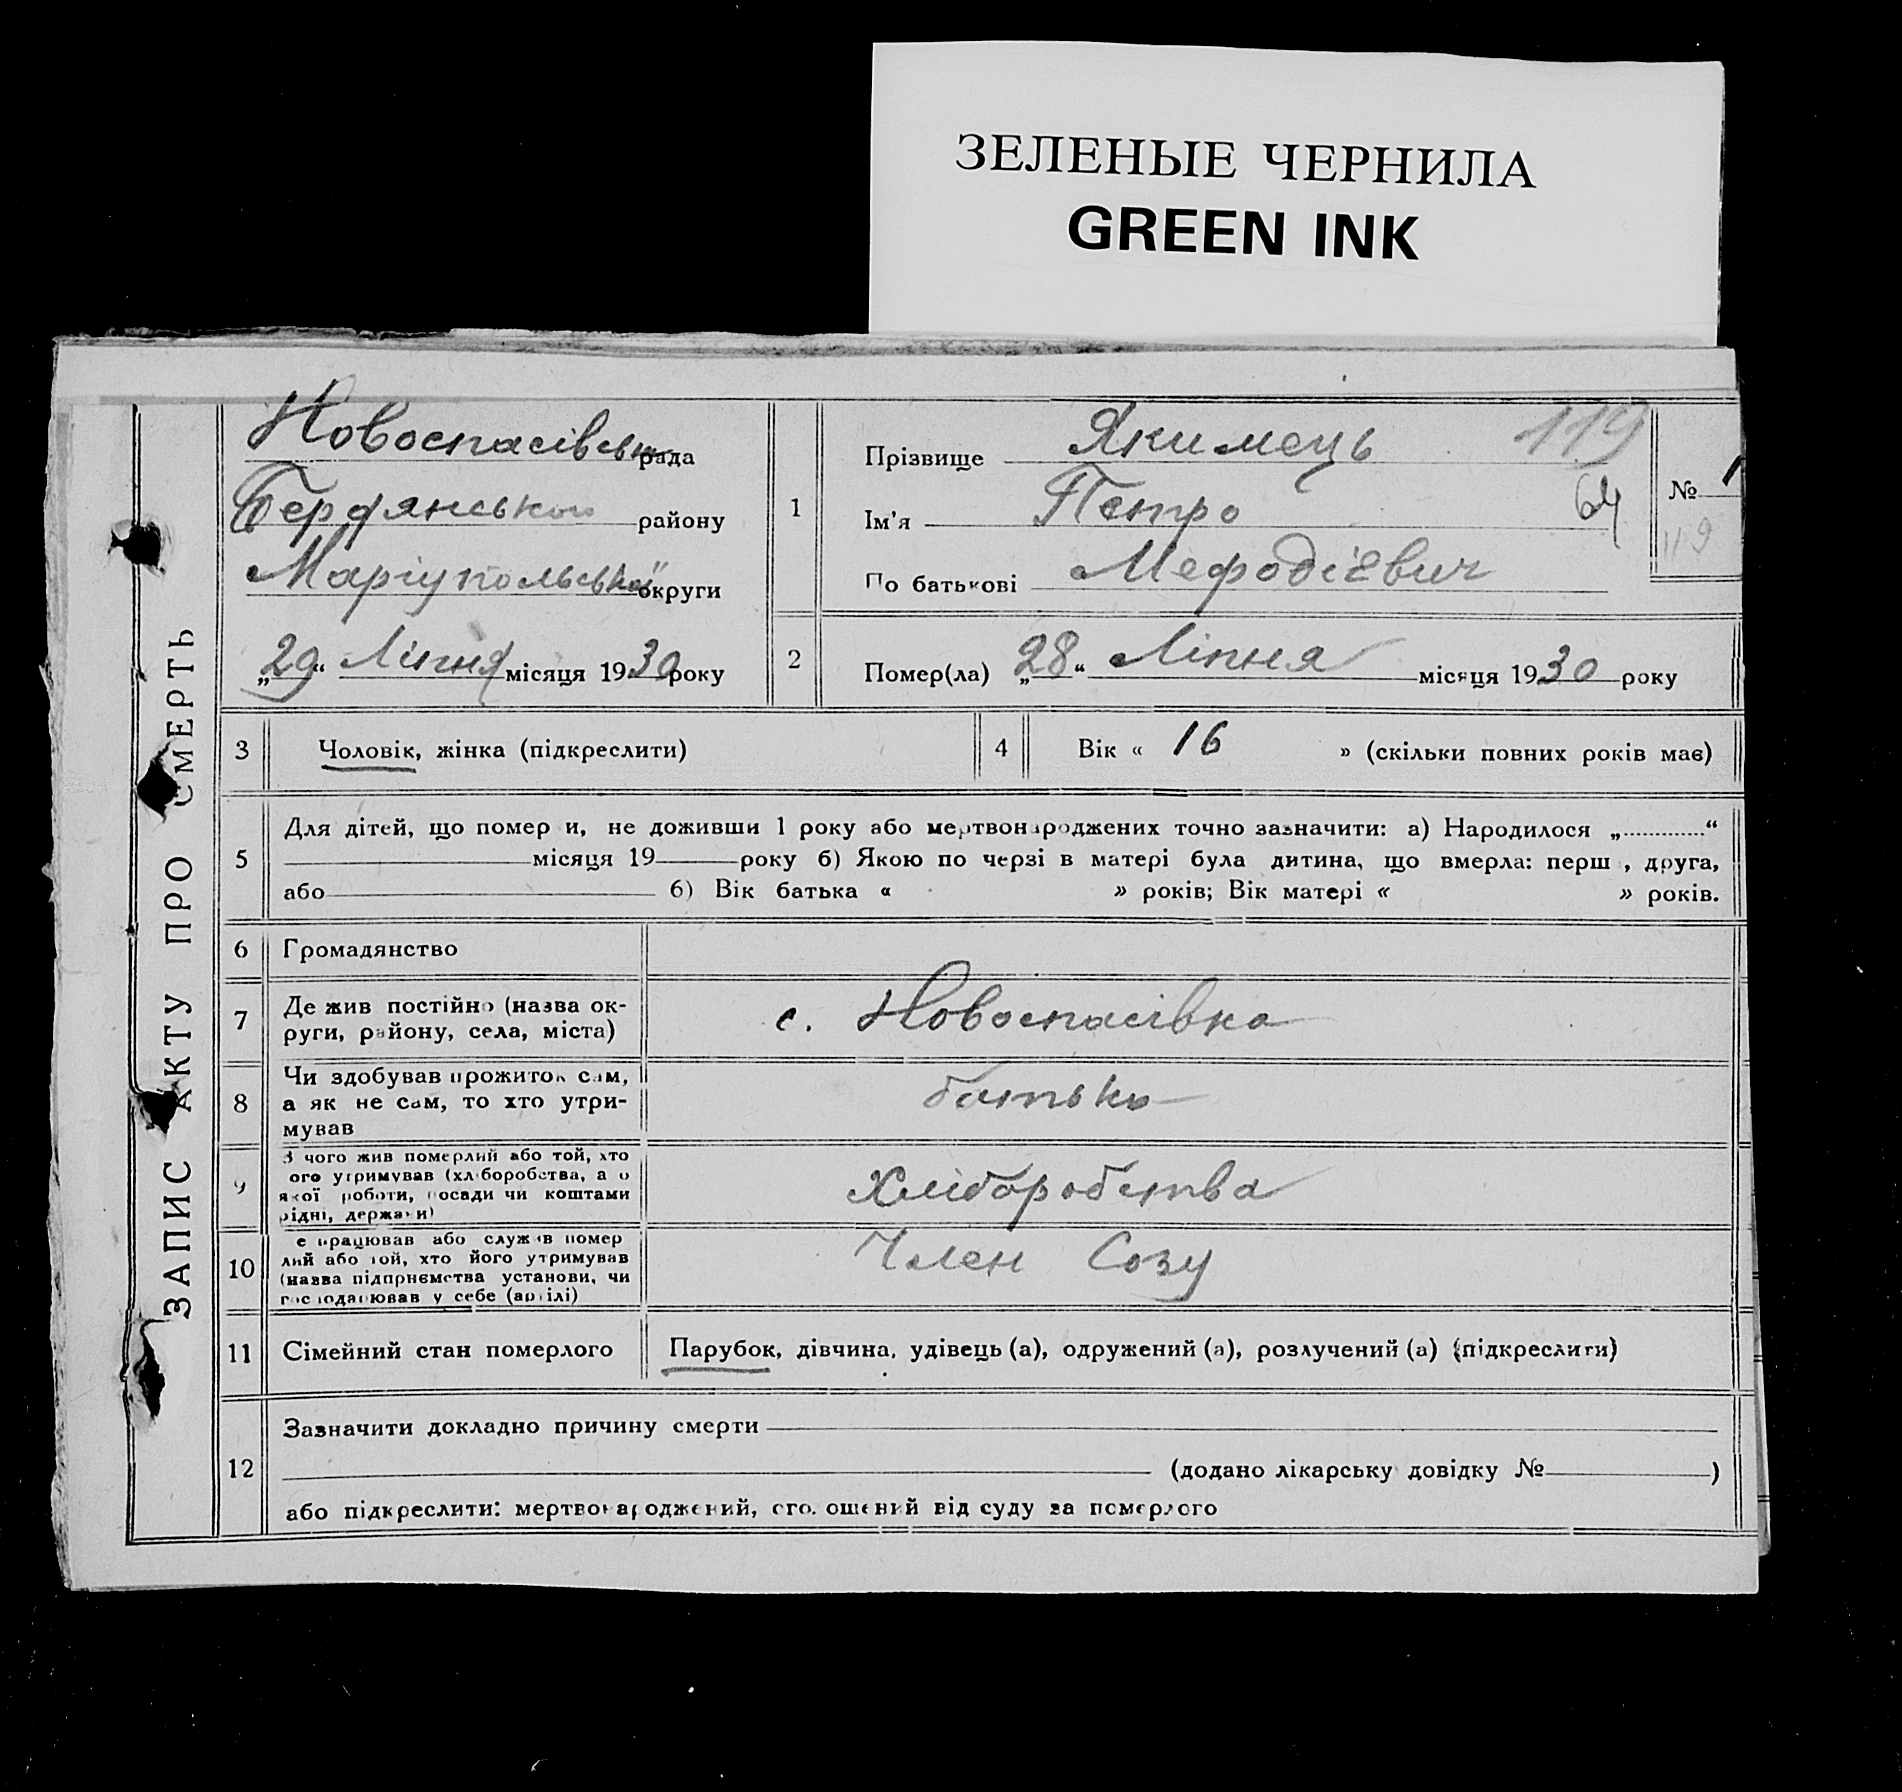 ЗЕЛЕНЫЕ ЧЕРНИЛА
GREEN INK
ЗАПИС АКТУ ПРО СМЕРТЬ
Новоспасівська рада
Бердянського району
Маріупольської округи
„29“ Ліпня місяця 1930 року
1
Прізвище Якимець
119
Ім'я Петро
64
По батькові Мефодієвич
№ 1
119
2
Помер(ла) „28“ Ліпня місяця 1930 року
3 Чоловік, жінка (підкреслити)
4 Вік « 16 » (скільки повних років має)
5
Для дітей, що померли, не доживши 1 року або мертвонароджених точно зазначити: а) Народилося „............“
місяця 19 року б) Якою по черзі в матері була дитина, що вмерла: перш , друга,
або б) Вік батька « » років; Вік матері « » років.
6 Громадянство
7
Де жив постійно (назва ок-
руги, району, села, міста)
с. Новоспасівка
8
Чи здобував прожиток сам,
а як не сам, то хто утри-
мував
батько
9
З чого жив померлий або той, хто
ого утримував (хліборобства, а о
якої роботи, посади чи коштами
рідні, держави)
Хліборобства
10
е працював або служив помер
лий або той, хто його утримував
(назва підпрнємства установи, чи
господарював у себе (артілі)
Член Созу
11 Сімейний стан померлого
Парубок, дівчина, удівець (а), одружений (а), розлучений (а) (підкреслити)
12
Зазначити докладно причину смерти
(додано лікарську довідку № )
або підкреслити: мертвонароджений, оголошений від суду за померлого